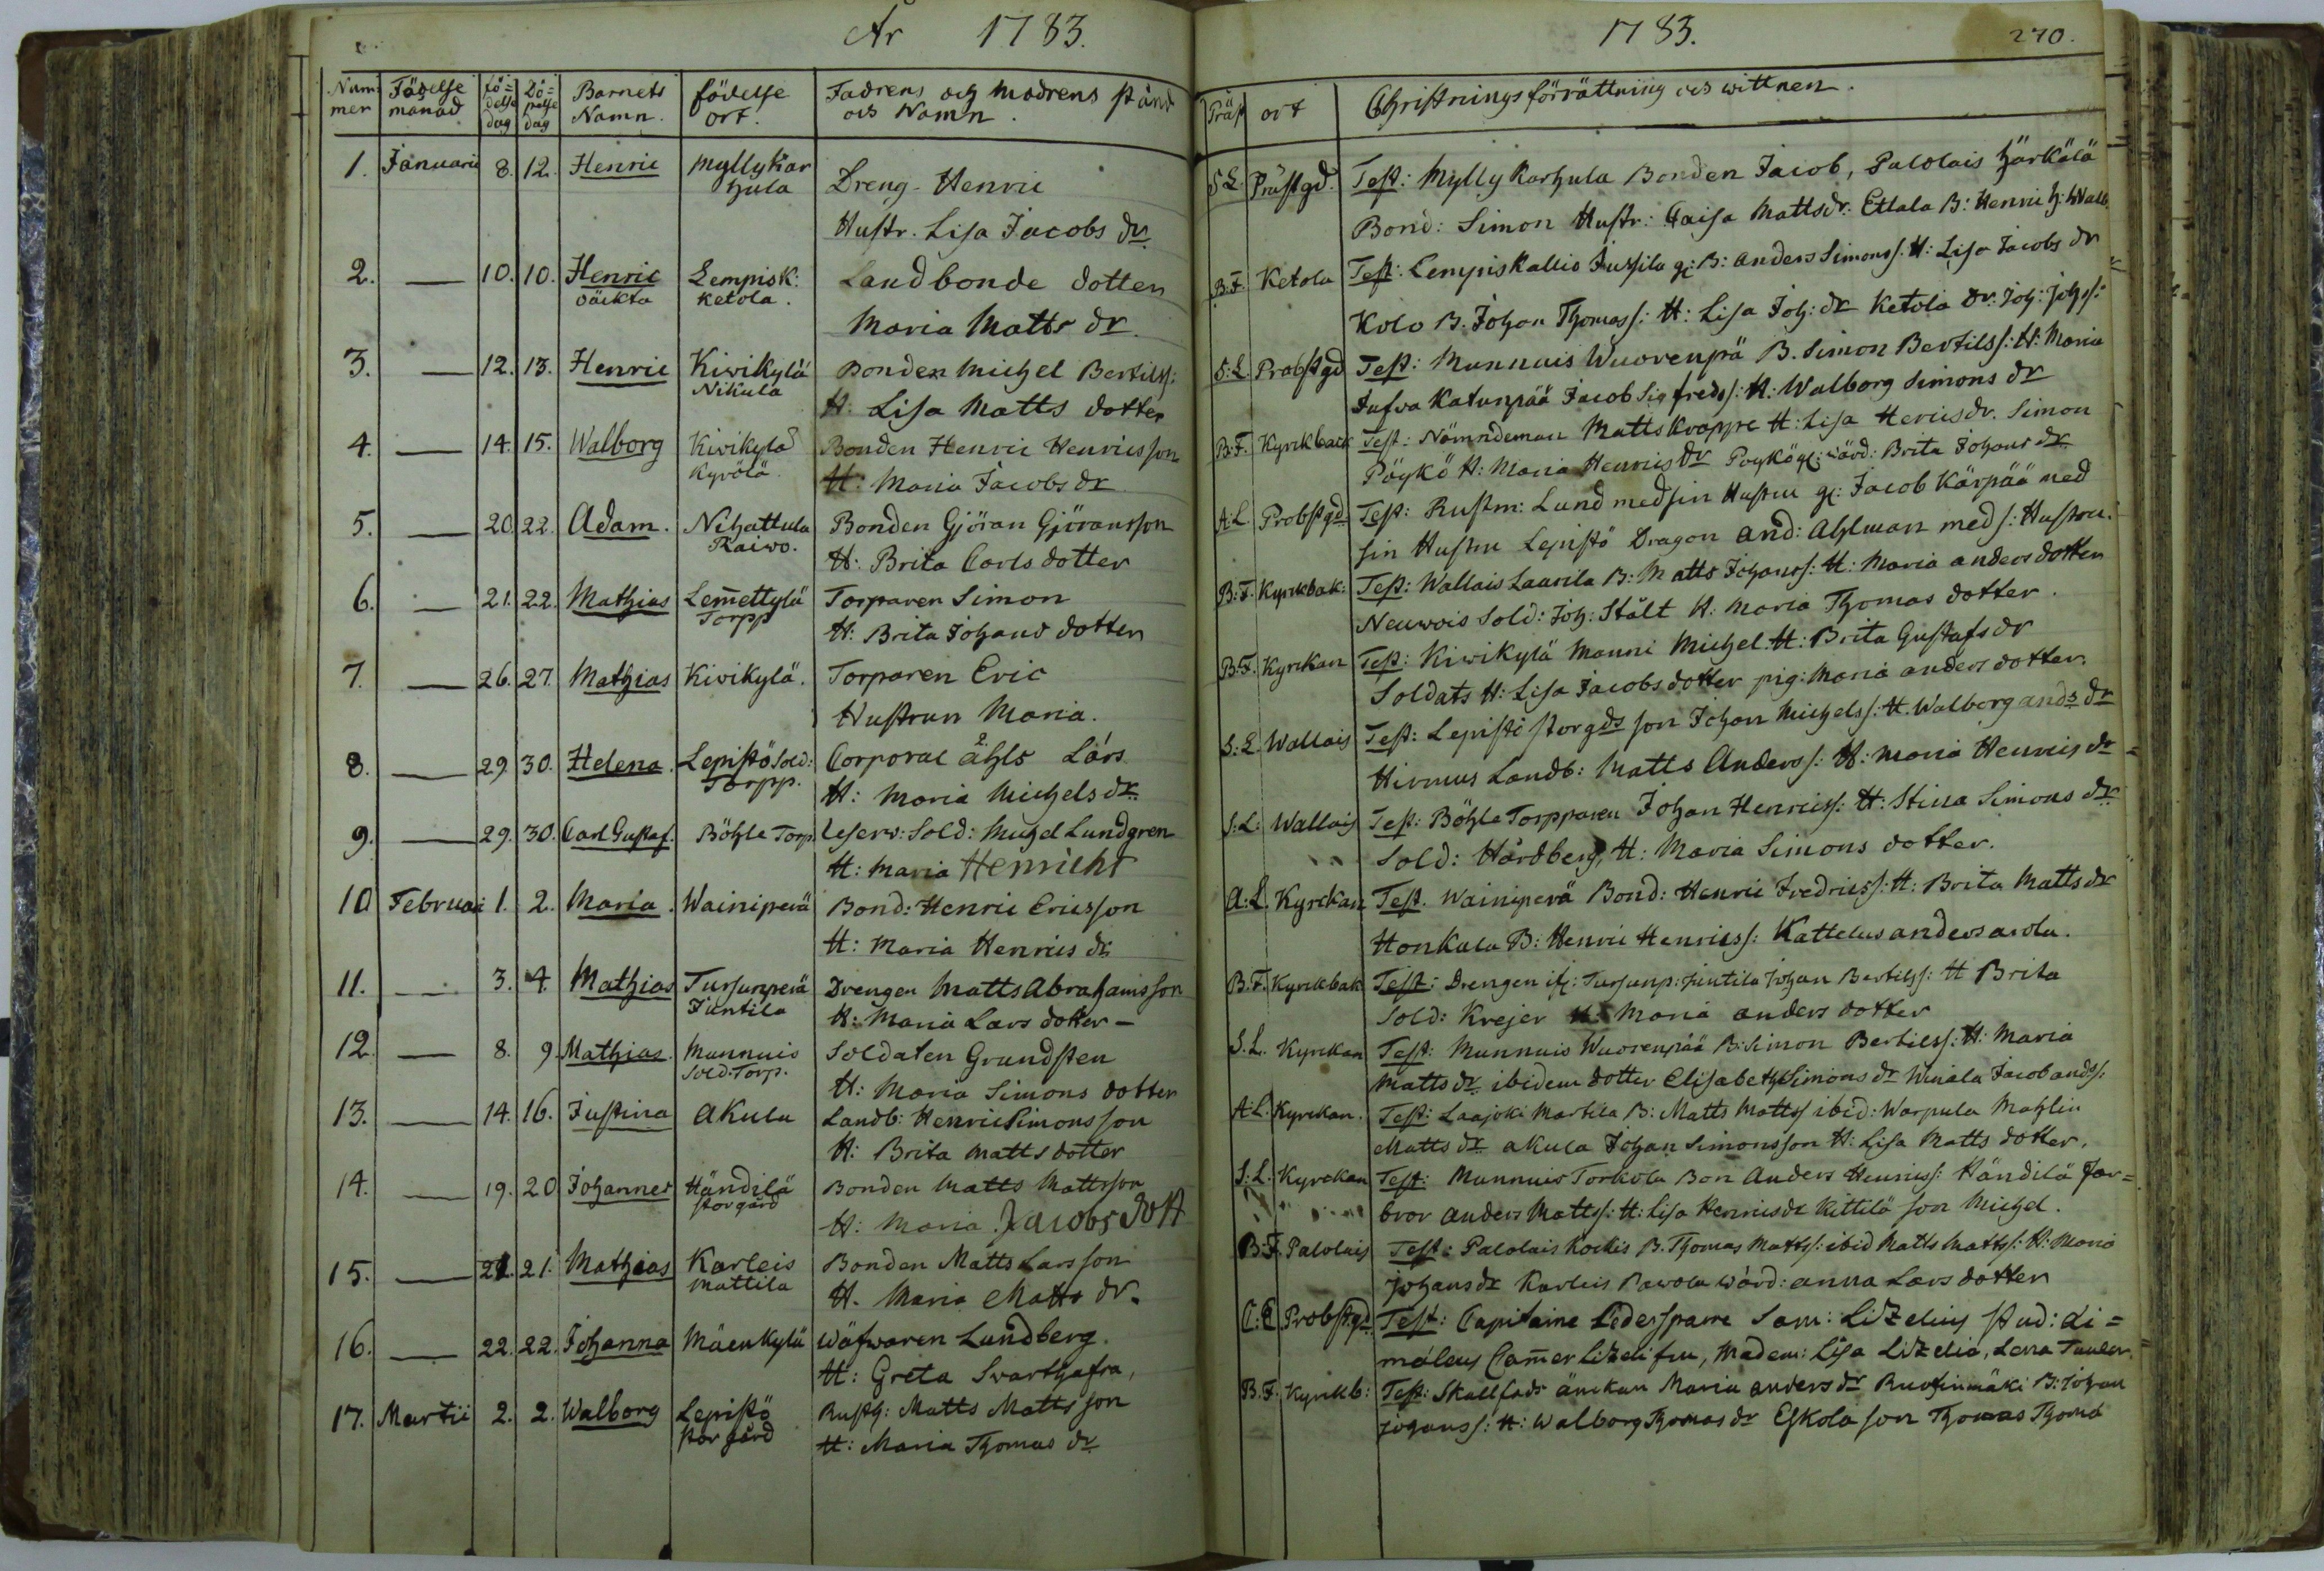 År 1783.
Num: mer
Födelse månad
fö= delse dag
Dö= pelse dag
Barnets Namn.
födelse ort.
Fadrens och modrens stånd och Namn.
1. Januarii 8. 12. Henric Myllykar Dreng Henric
hula Hustr. Lisa Jacobs dr.
2. — 10. 10. Henric Lempisk: Landbonde dotter
oäkta Ketola. Maria Matts dr
3. — 12. 13. Henric Kivikylä Bonden Michel Bertilss:
Nikula H: Lisa Matts dotter
4. — 14. 15. Walborg Kivikylä Bonden Henric Henricsson
Kyrölä. H: Maria Jacobs dr
5. — 20. 22. Adam. Nihattula Bonden Gjöran Gjöransson
Raiwo. H: Brita Carls dotter
6. — 21. 22. Mathias Lem̄ettylä Torparen Simon
Torpp H: Brita Johans dotter
7. — 26. 27. Mathias Kivikylä. Torparen Eric
Hustrun Maria.
8. — 29. 30. Helena. Lepistö Sold: Corporal Åhls Lars
Torpp. H: Maria Michels dr.
9. — 29. 30. Carl Gustaf. Böhle Torp. Reserv: Sold: Michel Lundgren
H: Maria Henrichs
10 Februari 1. 2. Maria. Wainiperä Bond: Henric Ericsson
H: Maria Henrics dr
11. — 3. 4. Mathias Tursunperä Drengen Matts Abrahamsson
Juntila H: Maria Lars dotter —
12. — 8. 9. Mathias. Munnuis Soldaten Grundsten
Sold: Torp. H: Maria Simons dotter
13. — 14. 16. Justina Akula Landb: Henric Simonsson
H: Brita Matts dotter
14. — 19. 20 Johannes Händilä Bonden Matts Mattsson
storgård H: Maria Jacobs dott
15. — 21. 21. Mathias Karleis Bonden Matts Larsson
Mattila H. Maria Matts dr.
16. — 22. 22. Johanna Mäenkylä Wäfwaren Lundberg.
H: Greta Svarthafra,
17. Martii 2. 2. Walborg Lepistö Rusth: Matts Mattsson
stor gård H: Maria Thomas dr
1783. 270.
Präst ort Christnings förrättning och wittnen.
S:L. Prästgd. Test: Myllykarhula Bonden Jacob, Palolais Härkälä
Bond: Simon Hustr: Caisa Mattsdr. Ettala B: Henric H: Walb.
B:F. Ketola Test: Lempiskallio Jussila gl: B: Anders Simonss: H: Lisa Jacobs dr
Kolo B. Johan Thomass: H: Lisa Joh: dr Ketola Dr: Joh: Johss:
S:L Probstgd Test: Munnuis Wuorenpä B. Simon Bertilss: H: Maria
Jufva Katunpää Jacob Sigfredss: H: Walborg Simons dr
B:F. Kyrkback Test: Nämndeman Matts Kvappe H: Lisa Henricsdr. Simon
Pöykö H: Maria Henrics dr Poykö gl: wärd: Brita Johans dr
A:L Probstgd Test: Rustm: Lund med sin Hustru gl: Jacob Kärpää med
sin Hustru Lepistö Dragon And: Ahlman med s: Hustru.
B:F. Kyrkbak: Test: Wallais Laurila B: Matts Johanss: H: Maria Anders dotter
Neuwois Sold: Joh: Stålt H: Maria Thomas dotter.
B:F. Kyrckan Test: Kiwikylä Manni Michel H: Brita Gustafs dr
Soldats H: Lisa Jacobs dotter pig: Maria Anders dotter.
S:L Wallais Test: Lepistö storgds son Johan Michelss: H. Walborg Ands dr
Hirmus Landb: Matts Anderss: H: Maria Henrics dr
S:L: Wallais Test: Böhle Torpparen Johan Henricss: H: Stina Simons dr
Sold: Hårdberg, H: Maria Simons dotter.
A:L. Kyrckan Test. Wainiperä Bond: Henric Fredricss: H: Brita Matts dr
Honkala B: Henric Henricss: Kattelus Anders
B:F. Kyrckbak Test: Drengen Tursunp: Juntila Johan Bertilss: H Brita
Sold: Krejer H: Maria Anders dotter
S.L. Kyrckan Test: Munnuis Wuorenpää B: Simon Bertilss: H: Maria
Matts dr ibidem dotter Elisabeth Simons dr Jacob Andss:
A:L. Kyrckan. Test: Laajoki Martila B: Matts Mattss ibid: Warpula Mahlin
Matts dr Akula Johan Simonsson H: Lisa Matts dotter.
S:L. Kyrckan Test: Munnuis Torkola Bon Anders Henricss: Händilä far=
bror Anders Mattss: H: Lisa Henricsdr Kittilä son Michel.
B:F. Palolais Test: Palolais Kockis B. Thomas Mattss: ibid Matts Mattss: H: Maria
Johansdr Karleis Pawola wärd: Anna Lars dotter
C:C Probstgd Test: Capitaine Cedersparre Sam: Lizelius Stud: Li=
malen Cam̄er Lizeli fru, Madem: Lisa Lizelia, Lena
B.F. Kyrckb: Test: Skallfads änckan Maria Anders dr Ruohinmäki B: Johan
Johanss: H: Walborg Thomas dr Eskola son Thomas Thoma